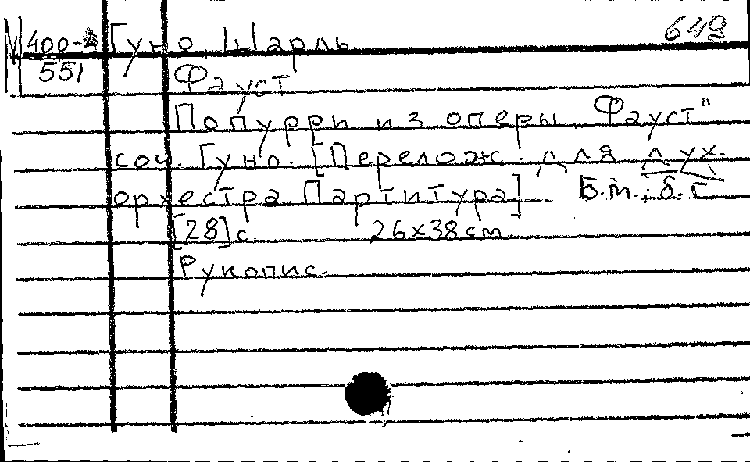 М 400-2 Гуно Шарль 612
551 Фауст
Попурри из оперы „Фауст"
соч. Гуно. [Перелож. для дух.
оркестра Партитура]. Б.м., б.г.
[28] с. 26х38 см.
Рукопис.